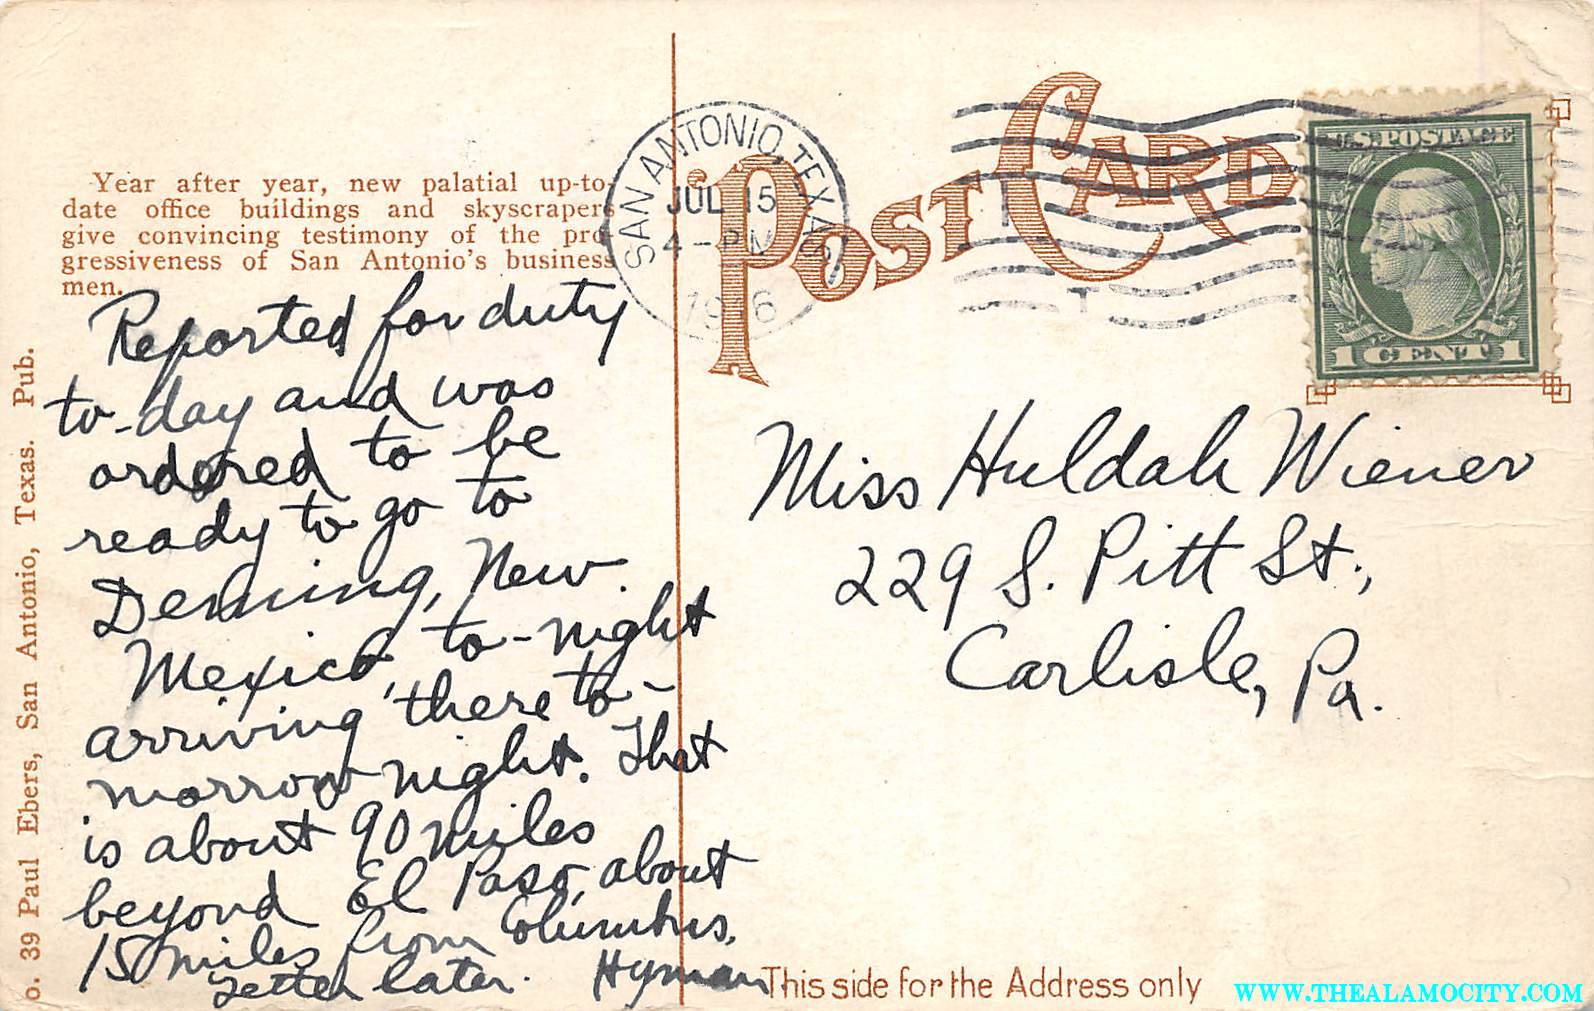 Year after year, new palatial up-to-
date office buildings and skyscrapers
give convincing testimony of the pro-
gressiveness of San Antonio's business
men.
Reported for duty
to-day and was
ordered to be
ready to go to
Deming, New
Mexico, to-night
arriving there to-
morrow night. That
is about 90 miles
beyond El Paso, about
15 miles from Columbus.
Letter later. Hyman
o. 39 Paul Ebers, San Antonio, Texas. Pub.
SAN ANTONIO, TEXAS
JUL 15
4-PM
1916
POST CARD
U.S. POSTAGE
1 CENT 1
Miss Huldah Wiener
229 S. Pitt St.,
Carlisle, Pa.
This side for the Address only
WWW.THEALAMOCITY.COM